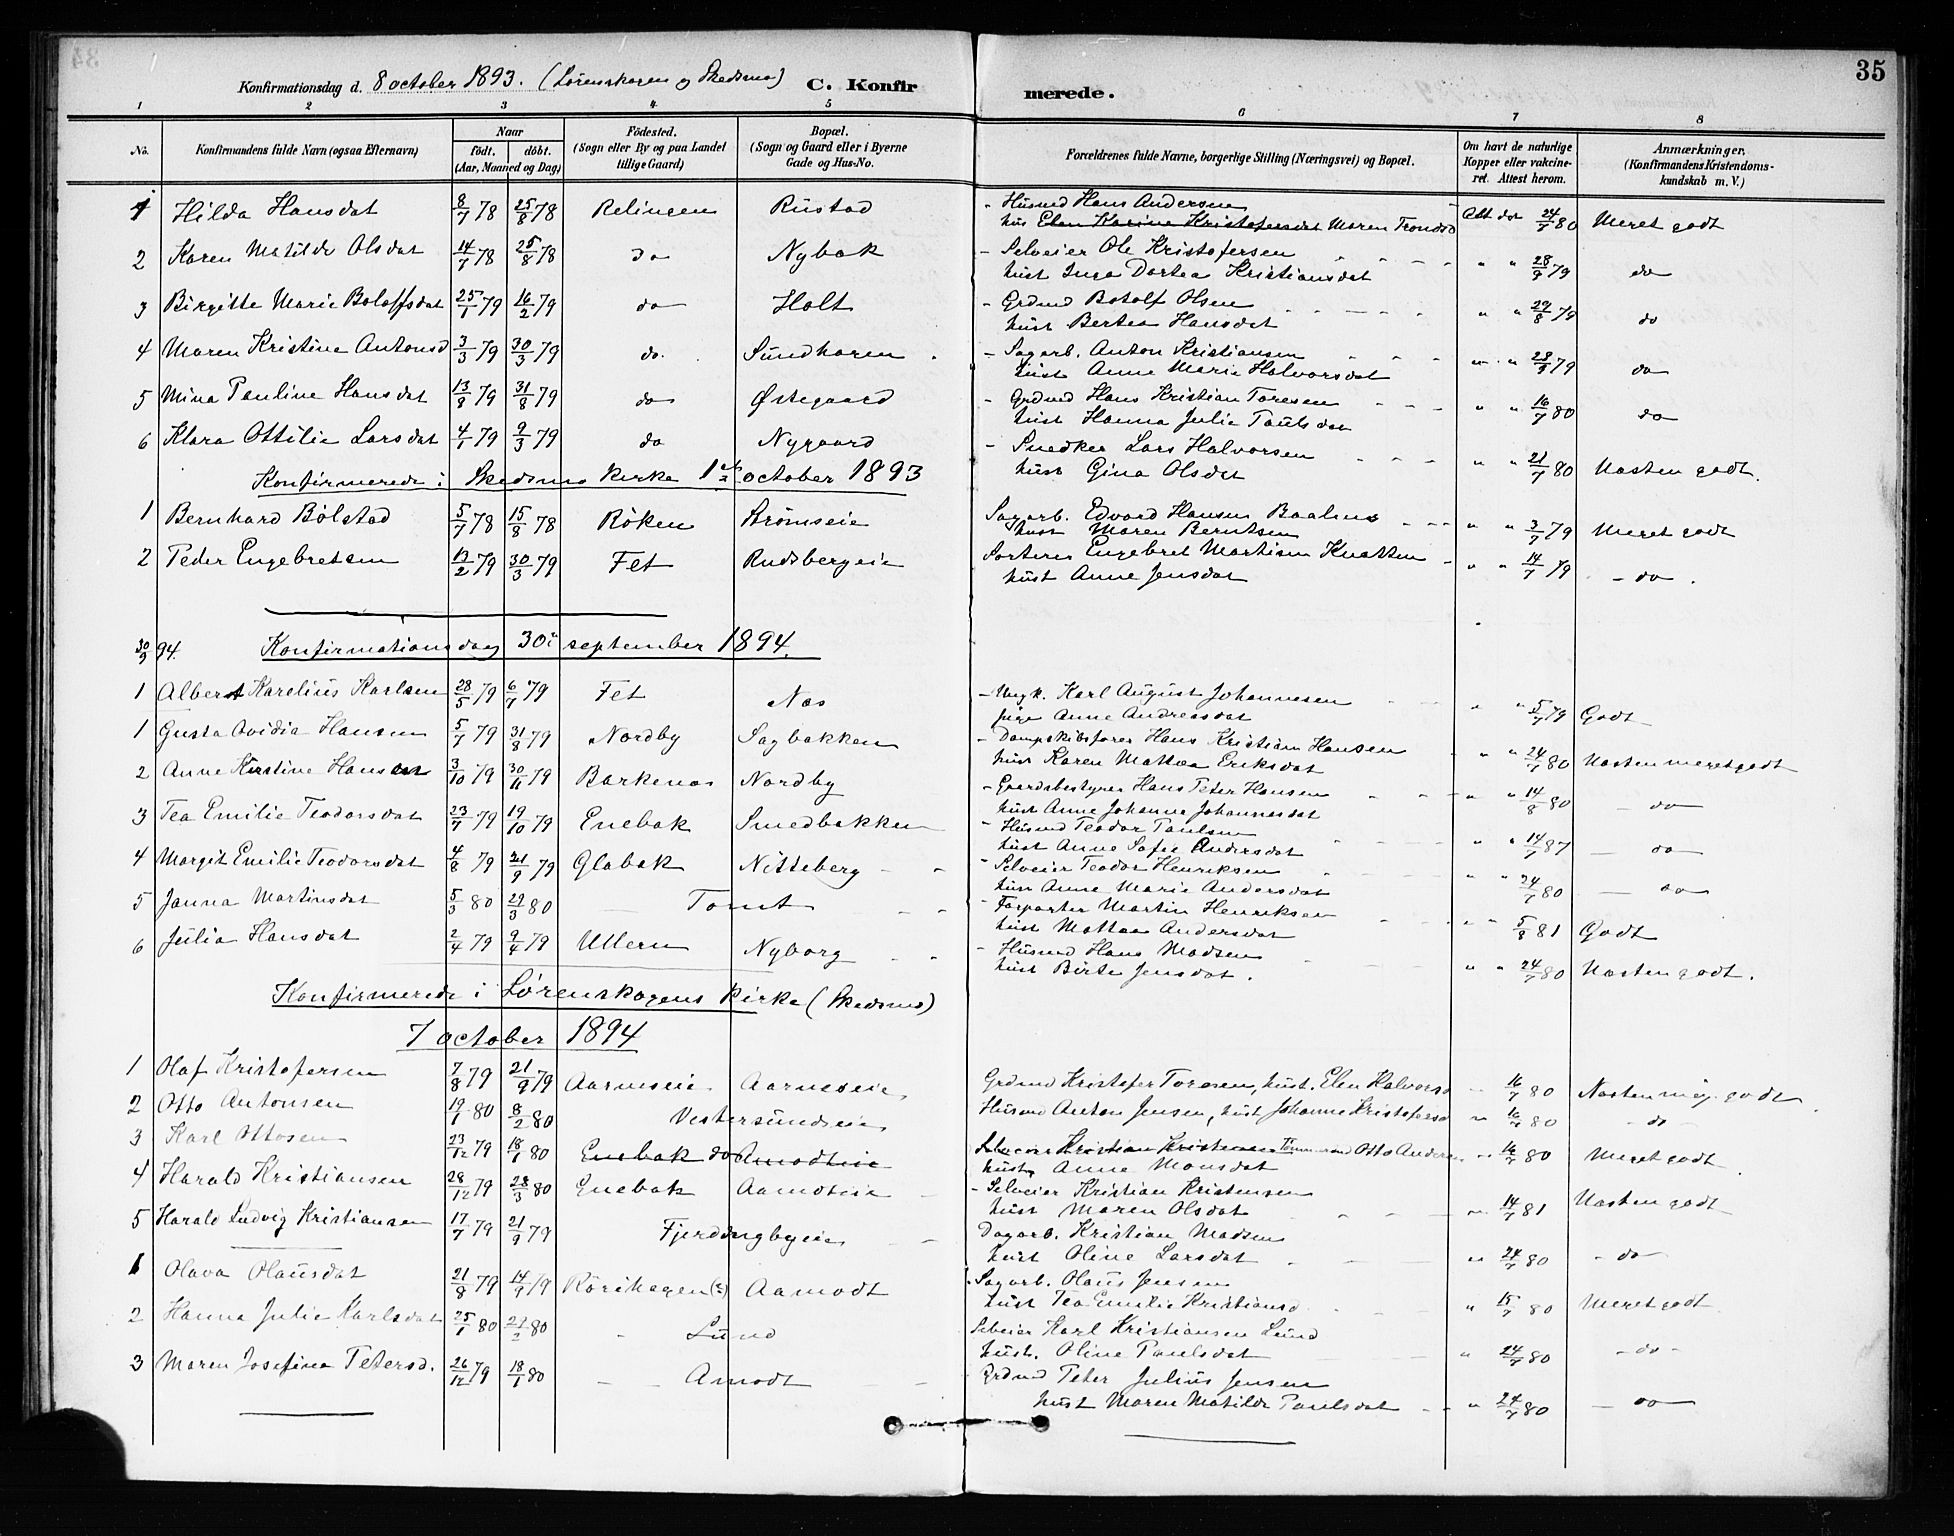 35
Konfirmationsdag d. 8 october 1893. (Lørenskogen og Skedsmo) C. Konfirmerede.
1 2 3 4 5 6 7 8
No. Konfirmandens fulde Navn (ogsaa Efternavn) Naar født. døbt. (Aar, Maaned og Dag) Fødested. (Sogn eller By og paa Landet tillige Gaard) Bopæl. (Sogn og Gaard eller i Byerne Gade og Hus-No. Forældrenes fulde Navne, borgerlige Stilling (Næringsvei) og Bopæl. Om havt de naturlige Kopper eller vakcineret. Attest herom. Anmærkninger, (Konfirmandens Kristendomskundskab m. V.)
1 Hilda Hansdat 8/7 78 25/8 78 Relingen Rustad - Husmd Hans Andersen Att dat 24/7 80 Meget godt
hus Elen Karine Kristofersdat Maren Trondsd
2 Karen Matilde Olsdat 14/7 78 25/8 78 do Nybak - Selveier Ole Kristofersen " " 28/9 79 do
hust Inga Dortea Kristiansdat
3 Birgitte Marie Boloffsdat 25/1 79 16/2 79 do Holt - Grdmd Botolf Olsen " " 29/8 79 do
hust Bertea Hansdat
4 Maren Kristine Antonsd 3/3 79 30/3 79 do. Sundhagen - Sagarb. Anton Kristiansen " " 28/9 79 do
hust Anne Marie Halvorsdat
5 Mina Pauline Hansdat 13/8 79 31/8 79 do Østegaard - Grdmd Hans Kristian Toresen " " 16/7 80 do
hust Hanna Julie Paulsdat
6 Klara Ottilie Larsdat 4/1 79 9/3 79 do Nygaard - Snedker Lars Halvorsen " " 21/7 80 Næsten godt.
hust Gina Olsdat
Konfirmerede i Skedsmo kirke 1 october 1893
1 Bernhard Bølstad 5/7 78 15/8 78 Røken Strømseie Sagarb. Edvard Hansen Baalens " " 3/7 79 Meget godt
hust Maren Berntsen
2 Peder Engebretsen 13/2 79 30/3 79 Fet Rudsbergeie Sorterer Engebret Martisen Knatten " " 14/7 79 - do.
hust Anne Jensdat
30/9 94. Konfirmationsdag 30 september 1894.
1 Albert Karelius Karlsen 28/5 79 6/7 79 Fet Nes - Ungk. Karl August Johannesen " " 5/7 79 Godt
pige Anne Andreasdat
1 Gusta Ovidia Hansen 5/7 79 31/8 79 Nordby Sagbakken - Dampskibsfører Hans Kristian Hansen " " 24/7 80 Næsten meget godt
hust Karen Mattea Eriksdat
2 Anne Kristine Hansdat 3/10 79 30/11 79 Barkenes Nordby - Gaardsbestyrer Hans Peter Hansen " " 14/8 80 - do
hust Anne Johanne Johannesdat
3 Tea Emilie Teodorsdat 23/7 79 19/10 79 Enebak Smedbakken - Husmd Teodor Paulsen " " 14/7 87 - do
hust Anne Sofie Andersdat
4 Margit Emilie Teodorsdat 4/8 79 21/9 79 Glabak Nitteberg - Selveier Teodor Henriksen " " 24/7 80 - do
hus Anne Marie Andersdat
5 Janna Martinsdat 5/3 80 29/3 80 Tomt - Forpagter Martin Henriksen " " 5/8 81 Godt
hust Mattea Andersdat
6 Julia Hansdat 2/4 79 9/4 79 Ullern Nyborg - Husmd Hans Madsen " " 24/7 80 Næsten godt.
hust Birte Jensdat.
Konfirmerede i Lørenskogens kirke (Skedsmo)
7 october 1894
1 Olaf Kristofersen 7/8 79 21/9 79 Aarneseie Aarneseie Grdmd Kristofer Toresen, hust. Elen Halvorsd 16/7 80 Næsten meg. godt
2 Otto Antonsen 19/1 80 8/2 80 Vestersundseie Husmd Anton Jensen, hust Johanne Kristofersd 16/7 80 - do -
3 Karl Ottosen 23/12 79 18/1 80 Enebak do Aamodteie Selveier Kristian Kristensen Tømmermd Otto Andersen 14/7 80 Meget godt
hust Anne Monsdat
4 Harald Kristiansen 28/12 79 28/3 80 Enebak Aamoteie - Selveier Kristian Kristensen 14/7 81 Næsten godt
hust Maren Olsdat
5 Harald Ludvig Kristiansen 17/7 79 21/9 79 Fjerdingbyeie Dagarb. Kristian Madsen 24/7 80 - do
hust Oline Larsdat
1 Olava Olausdat 21/8 79 14/9 79 Rørihagen (?) Aamodt Sagarb. Olaus Jensen " 15/7 80 Meget godt
hust Tea Emilie Kristiansd
2 Hanna Julie Karlsdat 25/1 80 29/2 80 Lund Selveier Karl Kristiansen Lund " 24/7 80 - do -
hust. Oline Paulsdat
3 Maren Josefine Petersd. 26/12 79 18/1 80 Amodt Grdmd Peter Julius Jensen " 24/7 80 - do
hust Maren Matilde Paulsdat